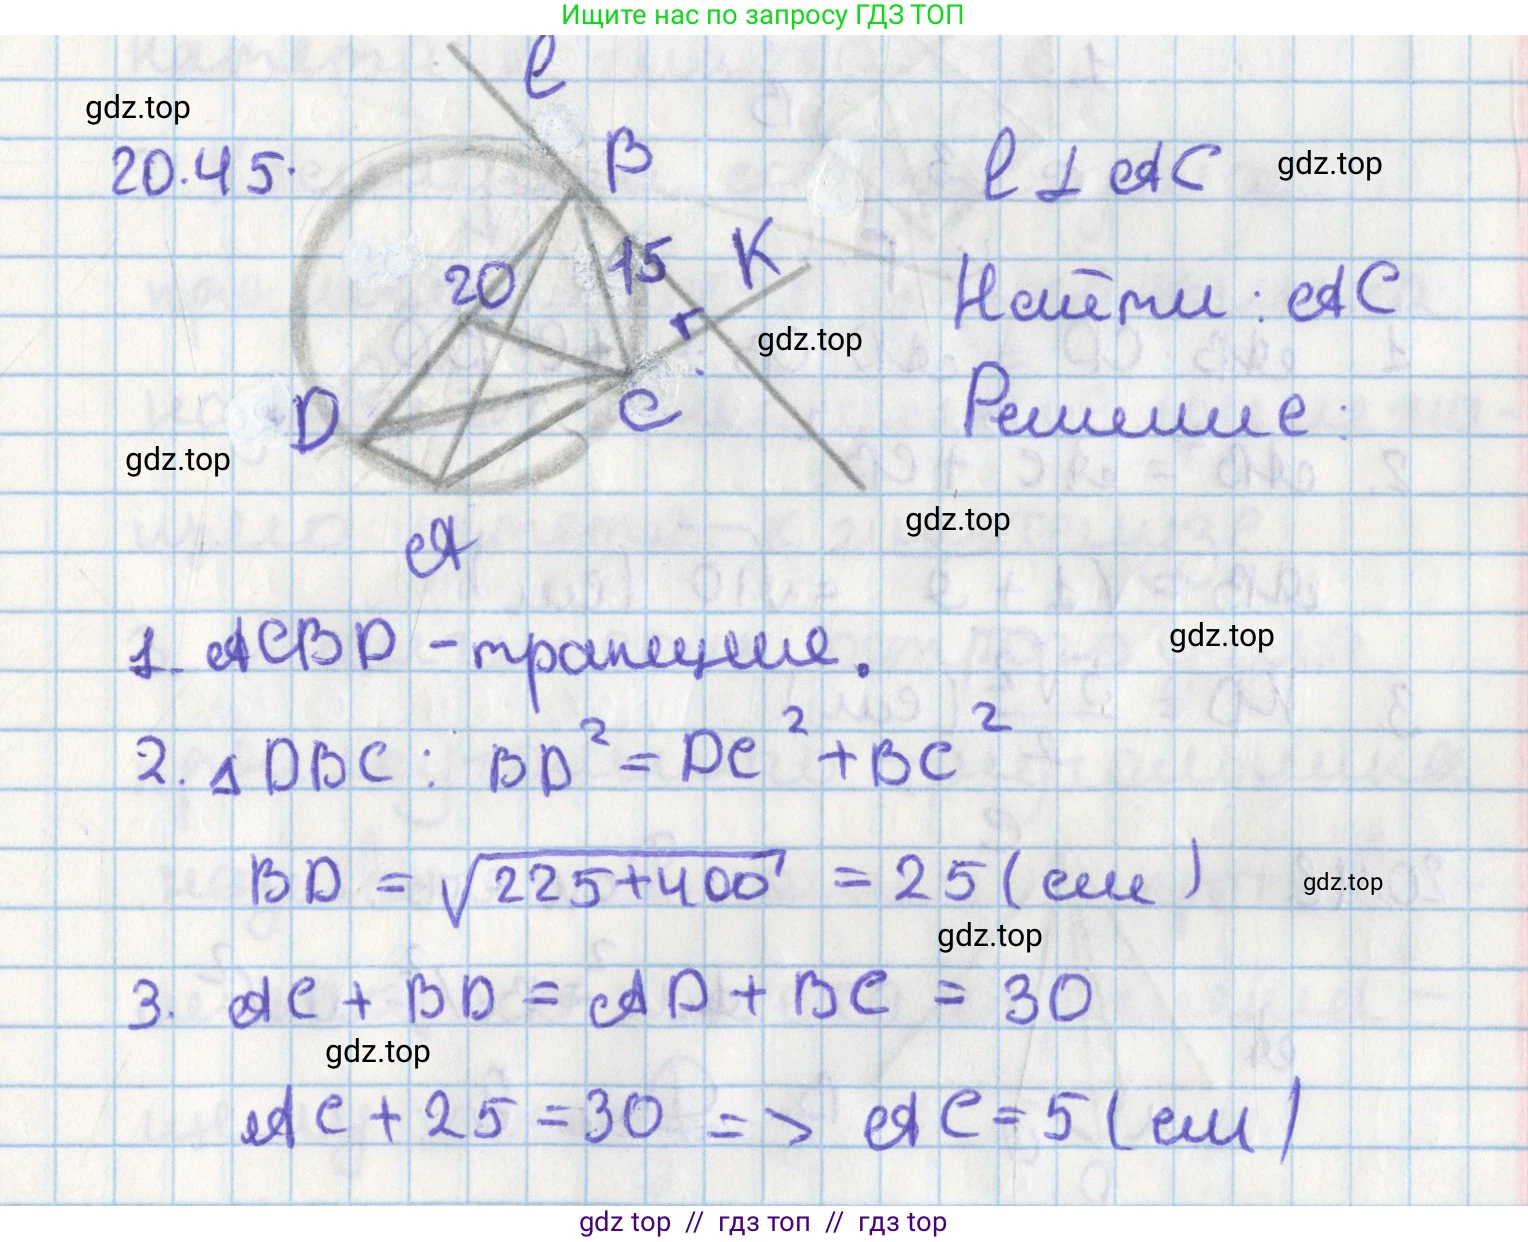 Ищите нас по запросу ГДЗ ТОП
ℓ
gdz.top
20.45.
B
ℓ ⊥ AC
gdz.top
20
15
K
Найти: AC
r
gdz.top
D
C
Решение:
gdz.top
gdz.top
A
1. ACBD – трапеция.
gdz.top
2. △DBC: BD² = DC² + BC²
BD = √225+400 = 25 (см)
gdz.top
gdz.top
3. AC + BD = AD + BC = 30
gdz.top
AC + 25 = 30 => AC = 5 (см)
gdz top // гдз топ // гдз top